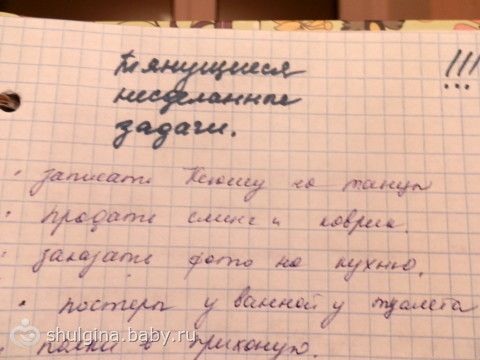 !!!
Тянущиеся
несделанные
задачи.
· записать Ксюшу на танцы
· продать слинг и коврик.
· заказать фото на кухню.
· постеры у ванной у туалета
· полки в прихожую.
shulgina.baby.ru